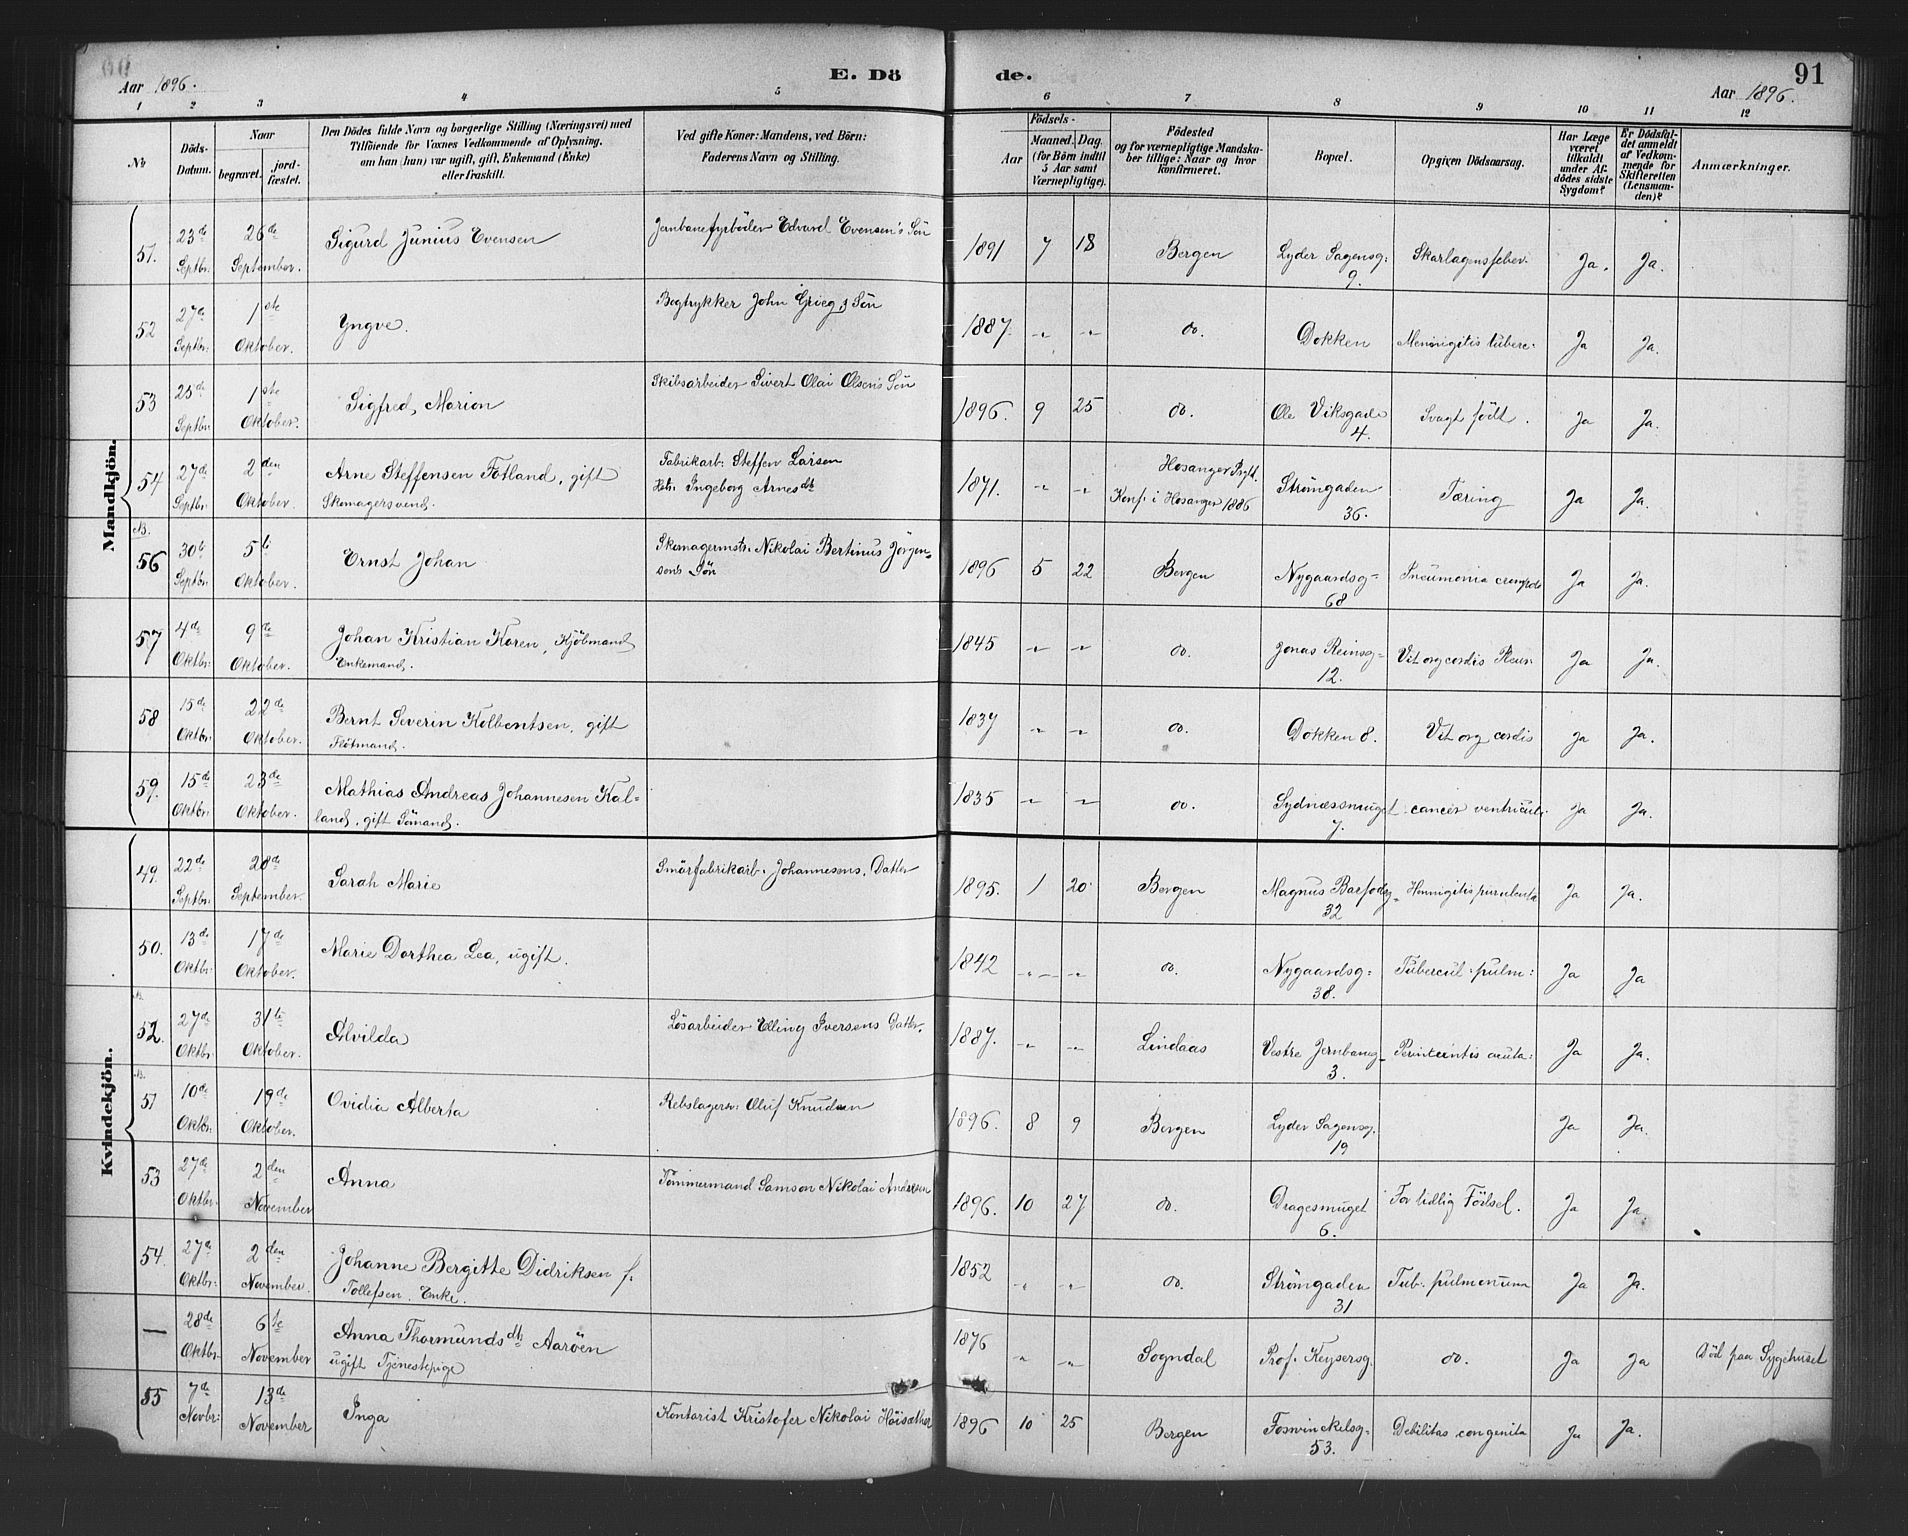 Aar 1896.
E. Dö
de.
91
Aar 1896.
1 2 3 4 5 6 7 8 9 10 11 12
No
Döds-Datum.
Naar
begravet. jordfæstet.
Den Dödes fulde Navn og borgerlige Stilling (Næringsvei) med Tilföiende for Voxnes Vedkommende af Oplysning. om han (hun) var ugift, gift, Enkemand (Enke) eller fraskilt.
Ved gifte Koner: Mandens, ved Börn: Faderens Navn og Stilling.
Födsels-
Aar Maaned. Dag. (for Börn indtil 5 Aar samt Værnepligtige).
Födested og for værnepligtige Mandskaber tillige: Naar og hvor konfirmeret.
Bopæl.
Opgiven Dödsaarsag.
Har Læge været tilkaldt under Afdödes sidste Sygdom?
Er Dödsfaldet anmeldt af Vedkommende for Skifteretten (Lensmanden)?
Anmærkninger.
Mandkjön.
51. 23de Septbr: 26de September. Sigurd Junius Evensen Jernbanefyrböder Edvard Evensen's Sön 1891 7 18 Bergen Lyder Sagensg: 9. Skarlagensfeber Ja. Ja.
52 27de Septbr: 1ste Oktober. Yngve. Bogtrykker John Grieg's Sön 1887. " " do. Dokken Meningitis tuberc: Ja Ja.
53 25de Septbr 1ste Oktober. Sigfred Marion Skibsarbeider Sivert Olai Olsens Sön 1896. 9 25 do. Ole Viksgade 4. Svagt födt. Ja Ja.
54 27de Septbr: 2den Oktober. Arne Steffensen Fotland, gift Skomagersvend. Fabrikarb: Steffen Larsen Hst: Ingeborg Arnesdt 1871. " " Hosanger Prgt. Konf. i Hosanger 1886 Strömgaden 36. Tæring Ja Ja.
56 30te Septbr: 5te Oktober. Ernst Johan Skomagermstr: Nikolai Bertinus Jörgensens Sön 1896 5 22 Bergen Nygaardsg= 68 Pneumonia crouposa Ja Ja.
57 4de Oktbr: 9de Oktober. Johan Kristian Koren, Kjöbmand Enkemand. 1845 " " do. Jonas Reinsg= 12. Vit org cordis Ja Ja.
58 15de Oktbr: 22de Oktober. Bernt Severin Kolbentsen, gift Flötmand. 1837 " " do. Dokken 8. Vit org cordis Ja Ja.
59. 15de Oktbr: 23de Oktober. Mathias Andreas Johannesen Kalland, gift Sömand. 1835 " " do. Sydnæssmuget 7. cancer ventriculi. Ja Ja.
Kvindekjön.
49. 22de Septbr: 28de September. Sarah Marie Smörfabrikarb. Johannesens, Datter 1895. 1 20 Bergen Magnus Barfodsg= 32 purulenta Ja Ja.
50. 13de Oktbr: 17de Oktober. Marie Dorthea Lea, ugift. 1842 " " do. Nygaardsg= 38. Tubercul: pulm: Ja Ja
52. 27de Oktbr: 31te Oktober. Alvilda Lösarbeider Elling Iversens Datter. 1887. " " Lindaas Vestre Jernbaneg= 3. acuta: Ja Ja.
51 10de Oktbr: 19de Oktober. Ovidia Alberta Rebslagersv: Oluf Knudsen 1896. 8 9 Bergen Lyder Sagensg. 19 Ja Ja.
53 27de Oktbr: 2den November Anna Tömmermand Samson Nikolai Andersen 1896. 10 27 do. Dragesmuget 6. For tidlig Födsel. Ja Ja.
54. 27de Oktbr: 2den November. Johanne Bergitte Didriksen f. Tollefsen. Enke. 1852 " " do. Strömgaden 31 Tub. pulmonum Ja Ja.
— 28de Oktbr: 6te November Anna Thormundsdt: Aaröen ugift Tjenestepige 1876 " " Sogndal Prof. Keysersg. do. Ja Ja Död paa Sygehuset
55 7de Novbr: 13de November Inga Kontorist Kristofer Nikolai Höisæther 1896 10 25 Bergen Foswinckelsg= 53. Debilitas congenita Ja Ja.